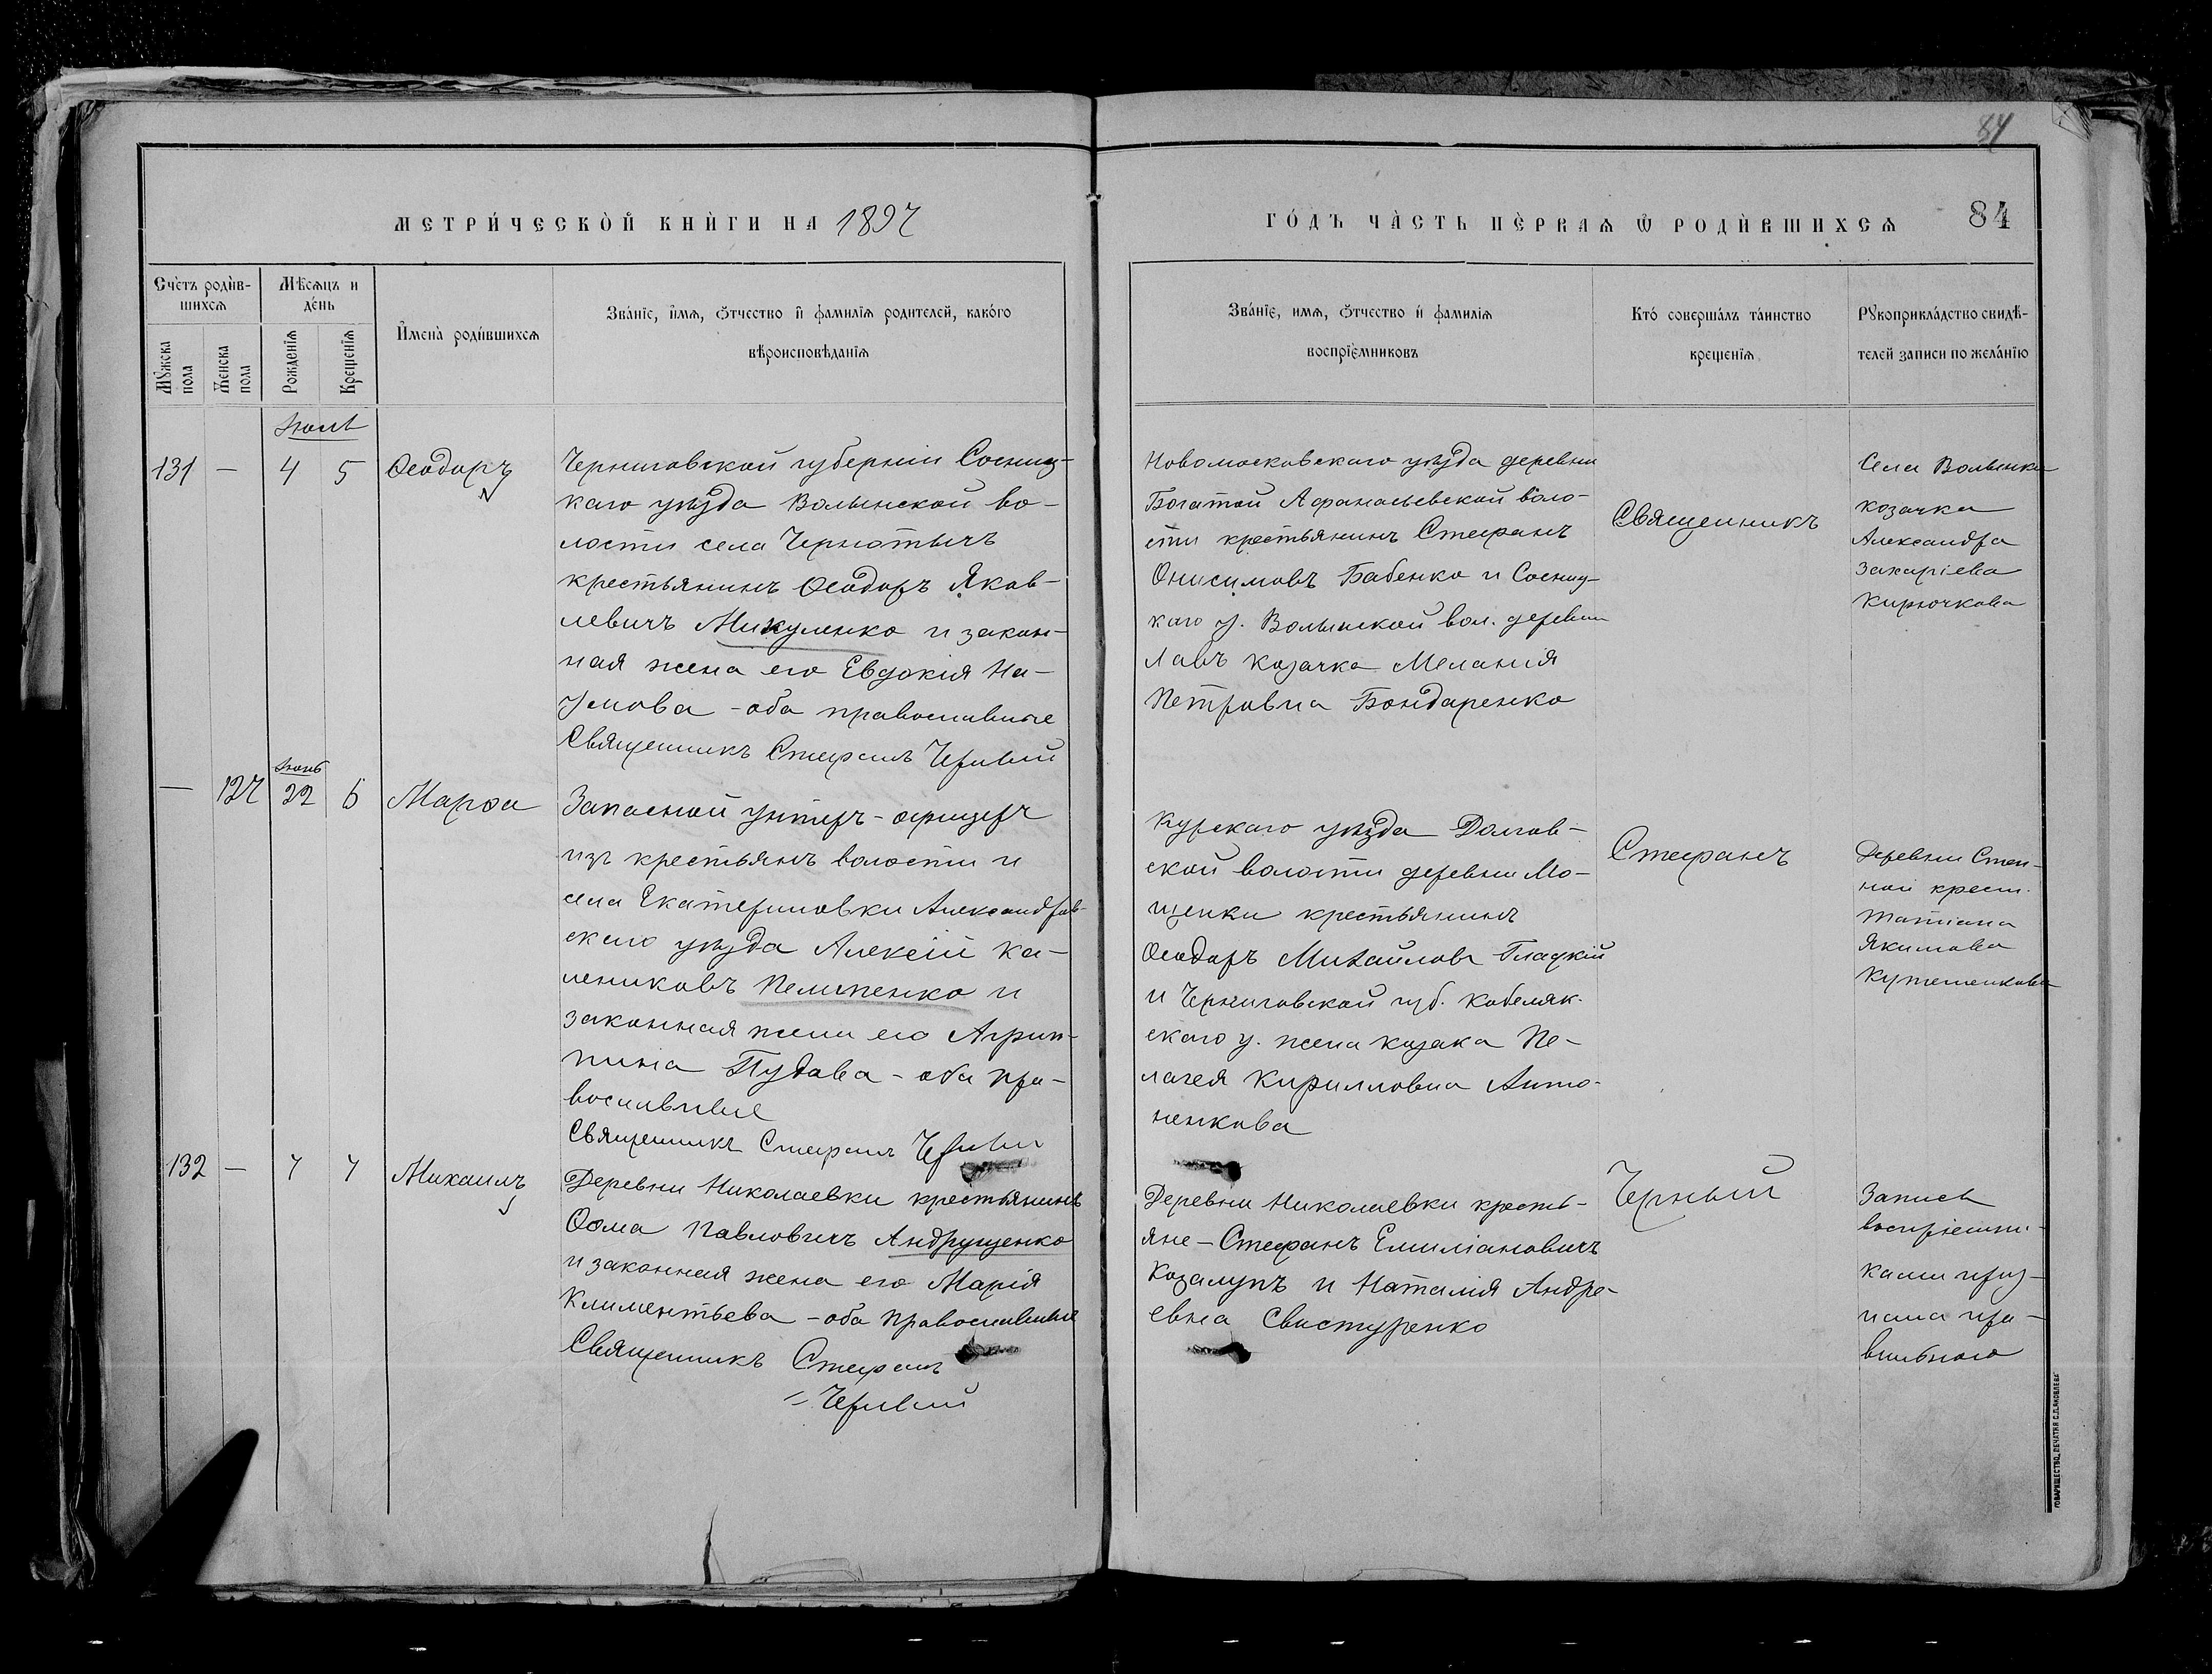 84
МЕТРИ́ЧЕСКО̀Й КНЍГИ НА 1897
ГО́ДЪ ЧА̀СТЬ ПЀРВАѦ Ѿ РОДЍВШИХСѦ 84
Счетъ роди́в-
шихсѧ
Мꙋжска пола
Женска пола
Мѣсѧцъ и
де́нь
Рожденїѧ
Крещенїѧ
И҆мена̀ роди́вшихсѧ
Зва́нїе, и҆́мѧ, ѻ҆́тчество и҆ фамилїѧ родителей, како́го
вѣроисповѣданїѧ
Зва́нїе, имѧ, ѻ҆́тчество и҆ фамилїѧ
воспрїе́мниковъ
Кто́ соверша́лъ та́инство
крещенїѧ
Рꙋкоприкла́дство свидѣ́-
телей записи по жела́нїю
Іюль
131 — 4 5 Ѳеодоръ
Черниговской губерніи Сосниц-
каго уѣзда Волынской во-
лости села Чернотичъ
крестьянинъ Ѳеодоръ Яков-
левичъ Микуленко и закон-
ная жена его Евдокія На-
умова - оба православные
Священникъ Стефанъ Черный
Новомосковскаго уѣзда деревни
Богатой Афанасьевской воло-
сти крестьянинъ Стефанъ
Онисимовъ Бабенко и Сосниц-
каго у. Волынской вол. деревни
Лавъ козачка Меланія
Петровна Бондаренко
Священникъ
Села Волынки
козачка
Александра
Захаріева
Кирючкова
Іюнь
— 127 22 6 Марѳа
Запасной унтеръ-офицеръ
изъ крестьянъ волости и
села Екатериновки Александров-
скаго уѣзда Алексій Ка-
лениковъ Пелипенко и
законная жена его Агрип-
пина Пудова - оба пра-
вославные
Священникъ Стефанъ Черный
Курскаго уѣзда Долгов-
ской волости деревни Мо-
щенки крестьянинъ
Ѳеодоръ Михайловъ Гладкій
и Черниговской губ. Кобеляк-
скаго у. жена козака Пе-
лагея Кирилловна Анто-
ненкова
Стефанъ
Деревни Степ-
ной крест.
Татіана
Якимова
132 — 7 7 Михаилъ
Деревни Николаевки крестьянинъ
Ѳома Павловичъ Андрущенко
и законная жена его Марія
Климентьева - оба православные
Священникъ Стефанъ
Черный
Деревни Николаевки кресть-
яне - Стефанъ Емиліановичъ
Козалупъ и Наталія Андре-
евна Свистуренко
Черный
Запись
воспріемни-
ками приз-
нана пра-
вильною
ТОВАРИЩЕСТВО „ПЕЧАТНЯ С.П.ЯКОВЛЕВА"